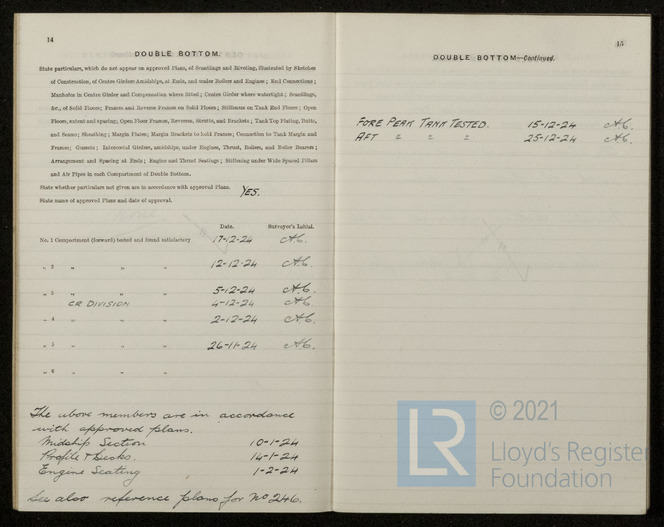 14
DOUBLE BOTTOM.
State particulars, which do not appear on approved Plans, of Scantlings and Riveting, illustrated by Sketches
of Construction, of Centre Girders Amidships, at Ends, and under Boilers and Engines; End Connections;
Manholes in Centre Girder and Compensation where fitted; Centre Girder where watertight; Scantlings,
&c., of Solid Floors; Frames and Reverse Frames on Solid Floors; Stiffeners on Tank End Floors; Open
Floors, extent and spacing; Open Floor Frames, Reverses, Struts, and Brackets; Tank Top Plating, Butts,
and Seams; Sheathing; Margin Plates; Margin Brackets to hold Frames; Connection to Tank Margin and
Frames; Gussets; Intercostal Girders, amidships, under Engines, Thrust, Boilers, and Boiler Bearers;
Arrangement and Spacing at Ends; Engine and Thrust Seatings; Stiffening under Wide Spaced Pillars
and Air Pipes in each Compartment of Double Bottom.
State whether particulars not given are in accordance with approved Plans. YES.
State name of approved Plans and date of approval.
Date. Surveyor's Initial.
No. 1 Compartment (forward) tested and found satisfactory 17-12-24 A.C.
„ 2 „ „ „ 12-12-24 A.C.
„ 3 „ „ „ 5-12-24 A.C.
CR DIVISION 4-12-24 A.C.
„ 4 „ „ „ 2-12-24 A.C.
„ 5 „ „ „ 26-11-24 A.C.
„ 6 „ „ „
The above members are in accordance
with approved plans.
Midship Section 10-1-24
Profile & Decks. 14-1-24
Engine Seating 1-2-24
See also reference plans for No 246.
15
DOUBLE BOTTOM—Continued.
FORE PEAK TANK TESTED. 15-12-24 A.C.
AFT " " " 25-12-24 A.C.
LR
© 2021
Lloyd's Register
Foundation